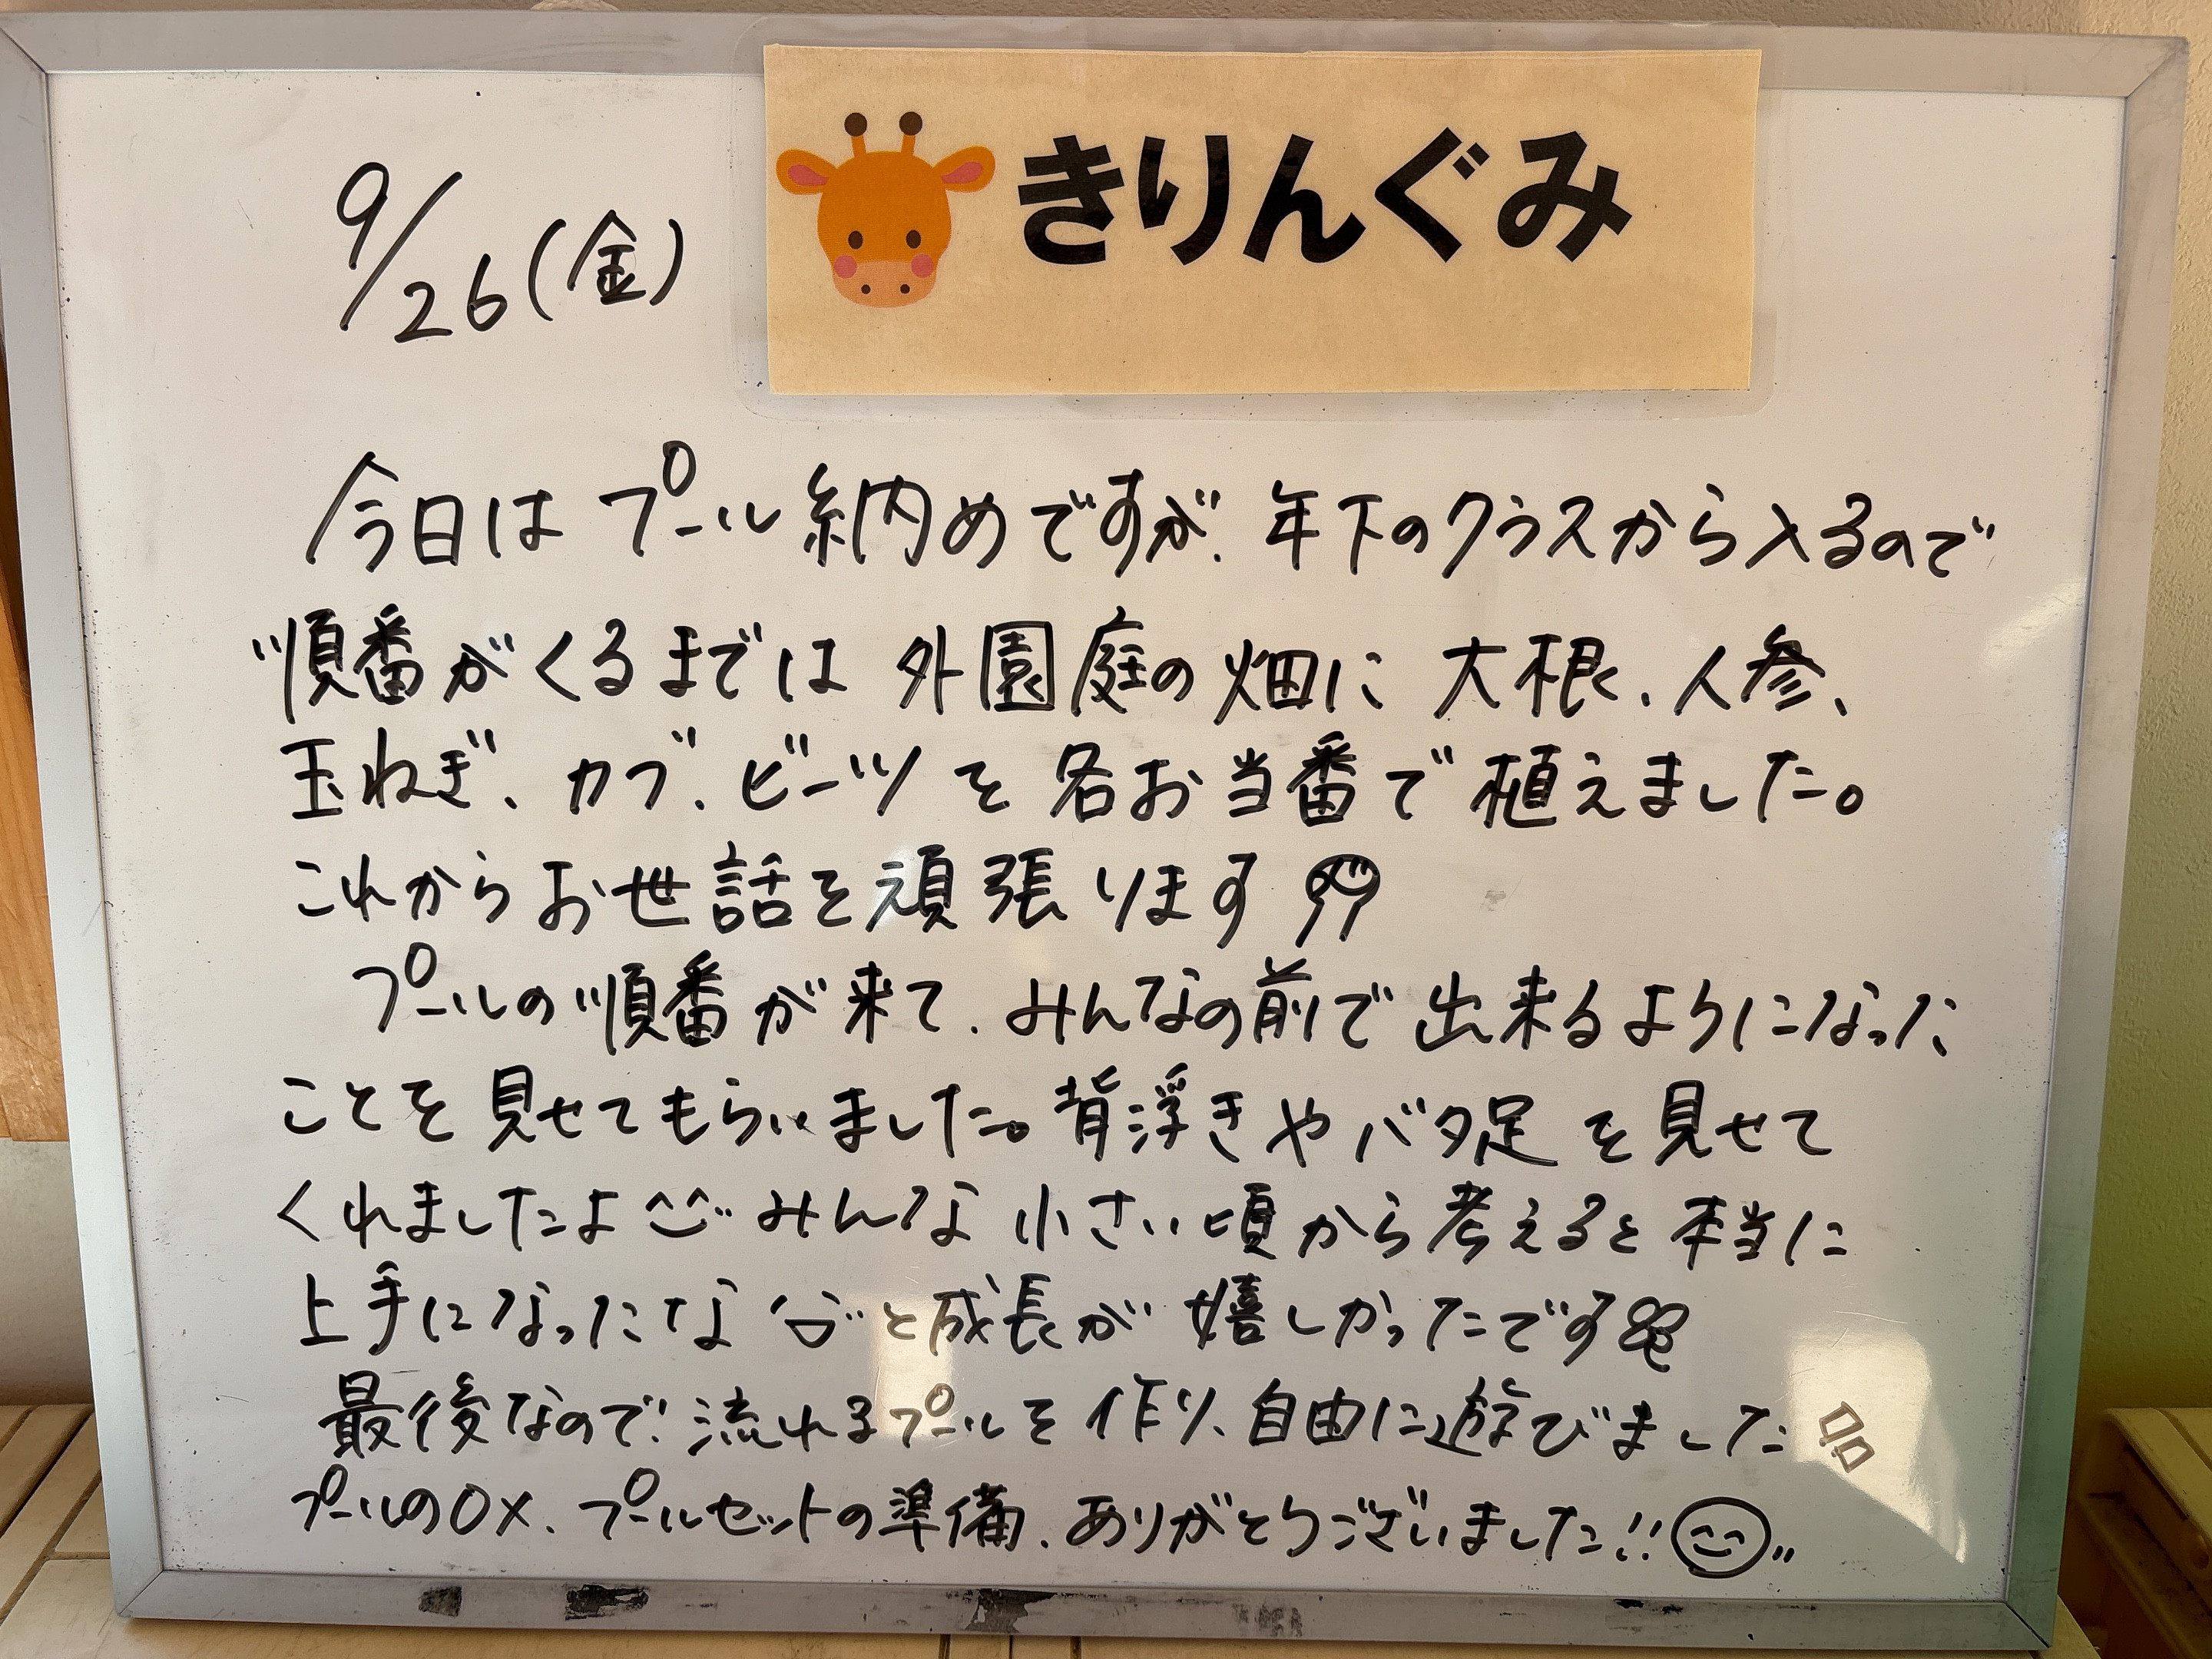 きりんぐみ
9/26(金)
今日は プール納めですが、年下のクラスから入るので
順番がくるまでは 外園庭の畑に 大根、人参、
玉ねぎ、カブ、ビーツ を 各お当番で 植えました。
これからお世話を頑張ります
プールの順番が来て、みんなの前で出来るようになった
ことを 見せてもらいました。背浮きやバタ足 を見せて
くれましたよ^^ みんな 小さい頃から考えると 本当に
上手になったな と成長が 嬉しかったです
最後なので、流れるプールを 作り、自由に遊びました
プールの○×、プールセットの準備、ありがとうございました!!